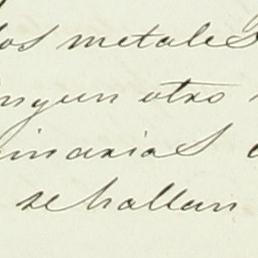 los metales
ingun otro
inarias
se hallan